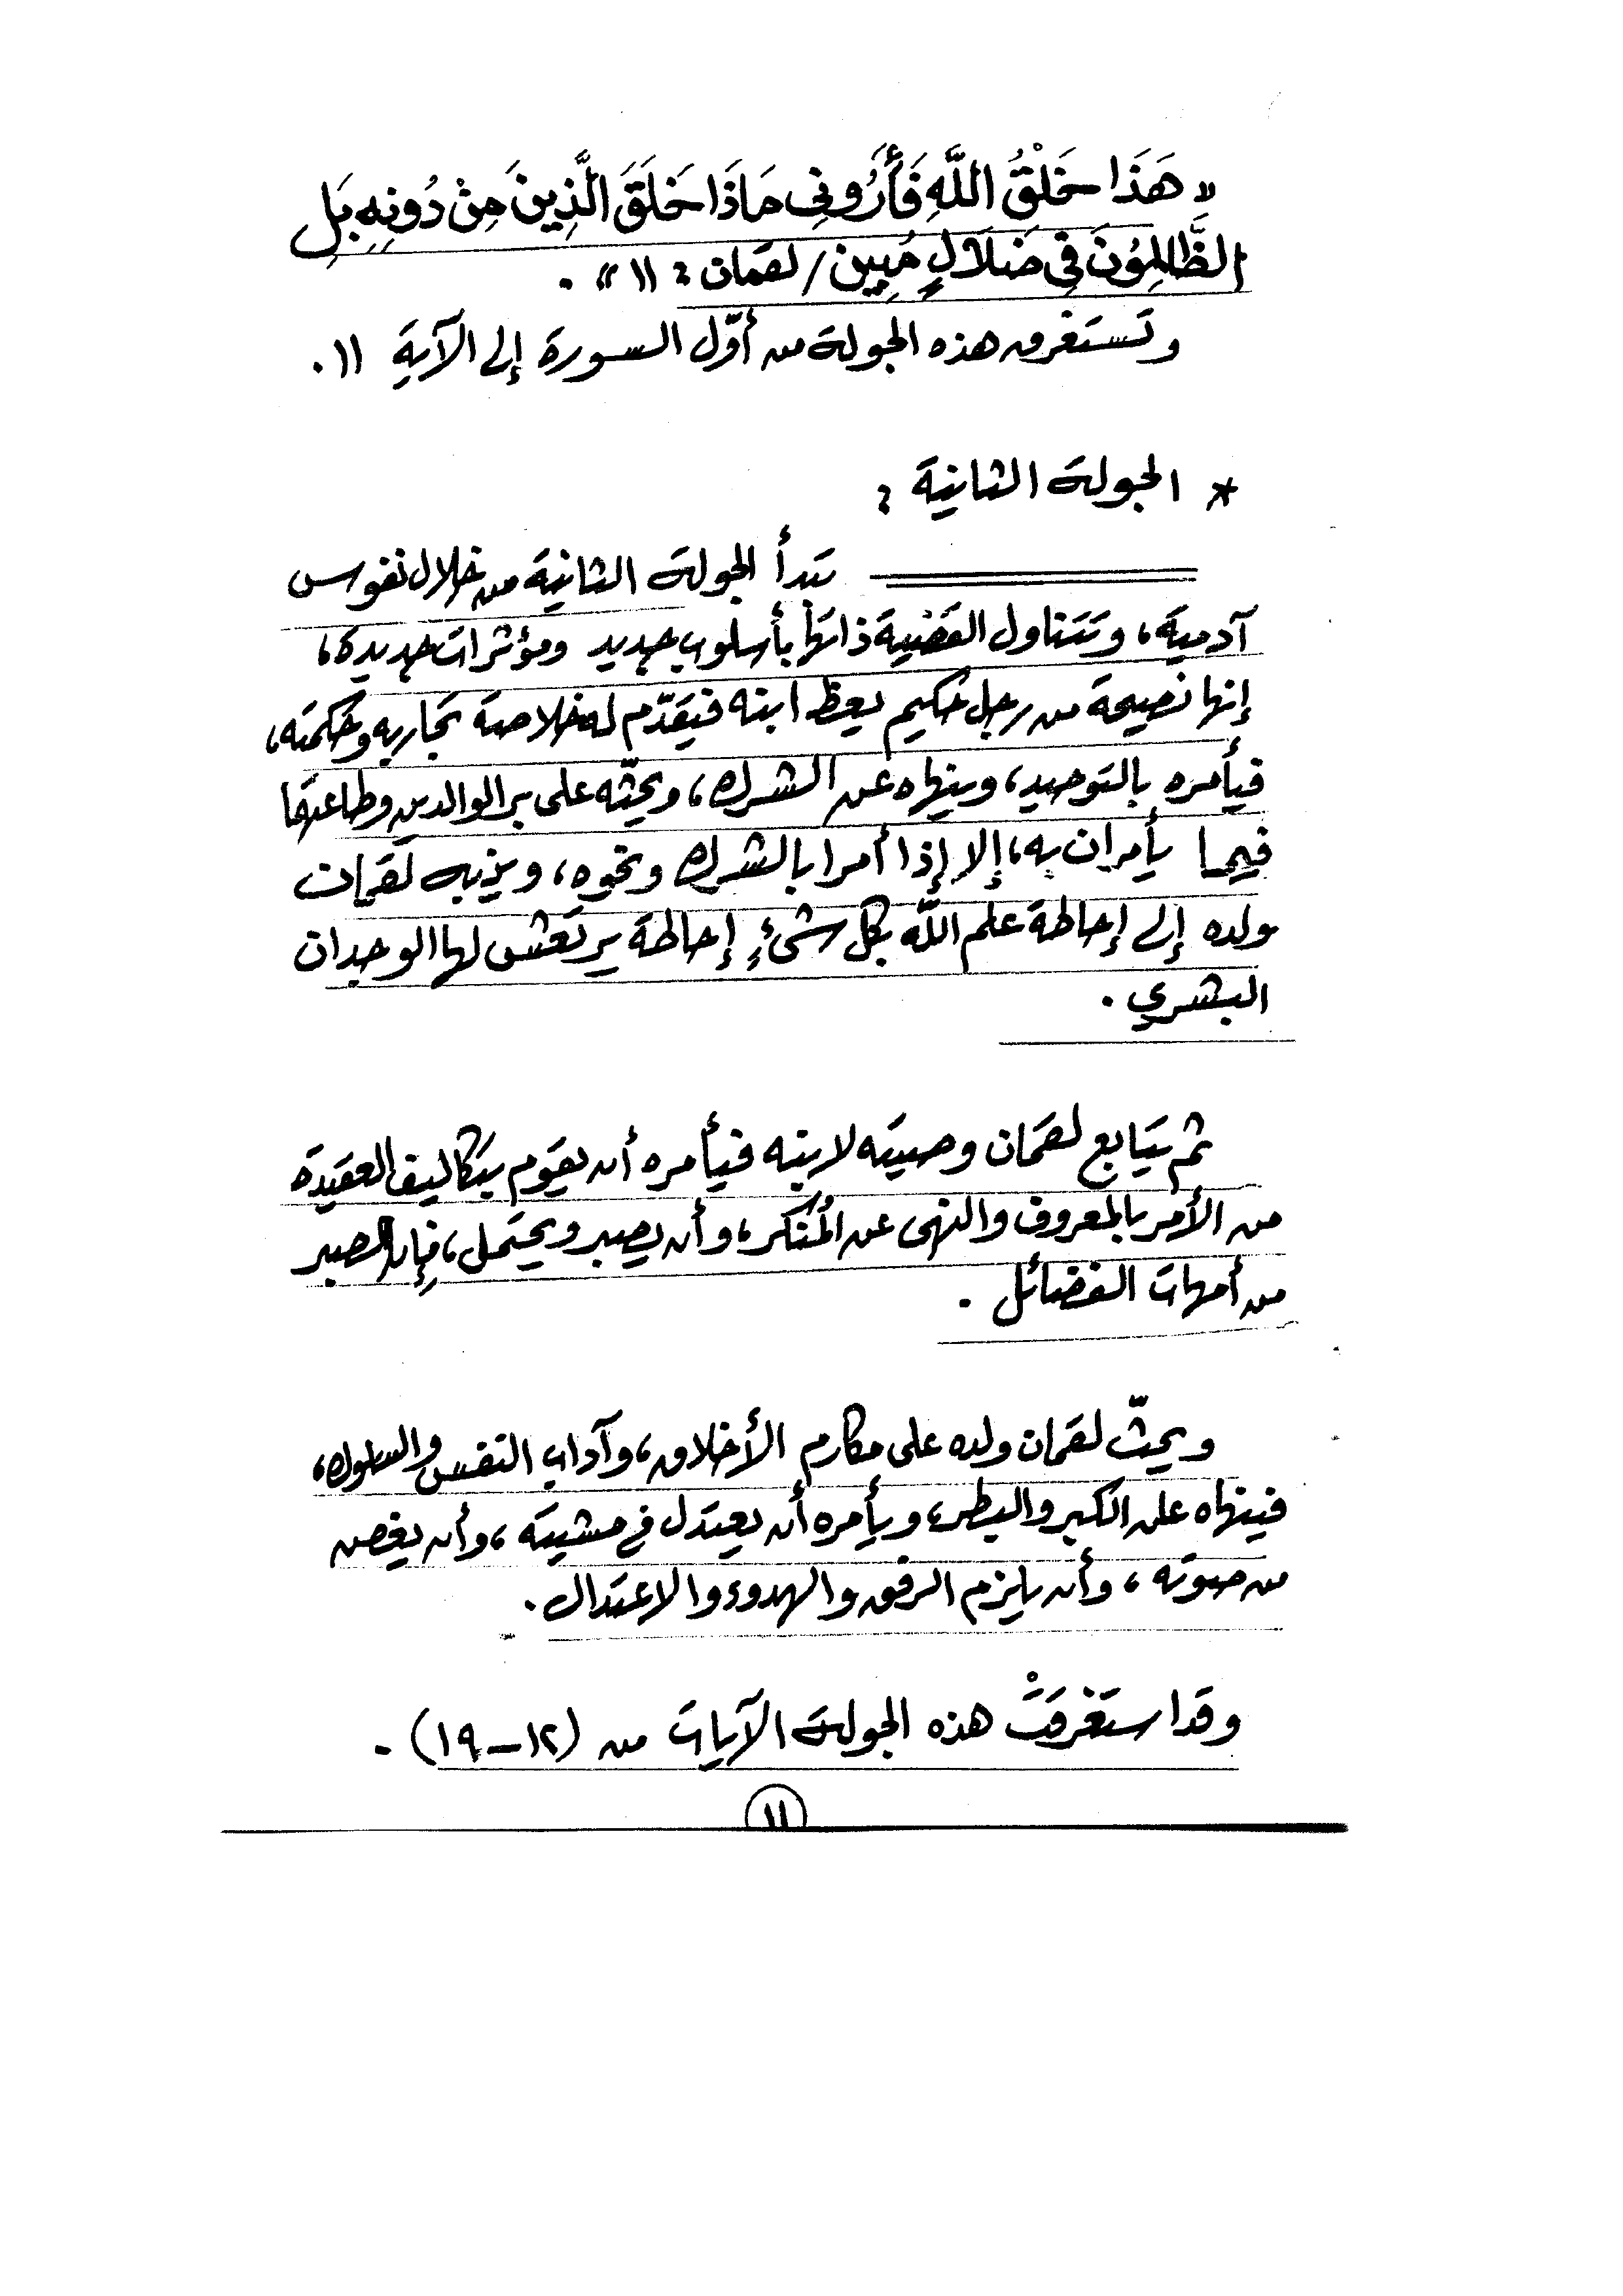 « هَذَا خَلْقُ اللَّهِ فَأَرُونِي مَاذَا خَلَقَ الَّذِينَ مِنْ دُونِهِ بَلِ
الظَّالِمُونَ فِي ضَلَالٍ مُبِين / لقمان : ١١ » .
وتستغرق هذه الجولة من أوّل السورة إلى الآية ١١ .
* الجولة الثانية :
تبدأ الجولة الثانية من خلال نفوس
آدمية ، وتتناول القضية ذاتها بأسلوب جديد ومؤثرات جديدة ،
إنها نصيحة من رجل حكيم يعظ ابنه فيقدّم له خلاصة تجاربه وحكمته ،
فيأمره بالتوحيد ، وينهاه عن الشرك ، ويحثّه على بر الوالدين وطاعتهما
فيما يأمران به ، إلا إذا أمرا بالشرك ونحوه ، وينبه لقمان
ولده إلى إحاطة علم الله بكل شيءٍ إحاطة يرتعش لها الوجدان
البشري .
ثم يتابع لقمان وصيته لابنه فيأمره أن يقوم بتكاليف العقيدة
من الأمر بالمعروف والنهى عن المُنكر ، وأن يصبر ويحتمل ، فإن الصبر
من أمهات الفضائل .
ويحثّ لقمان ولده على مكارم الأخلاق ، وآداب النفس والسلوك ،
فينهاه عن الكبر والبطر ، ويأمره أن يعتدل في مشيته ، وأن يغض
من صوته ، وأن يلزم الرفق والهدوء والاعتدال .
وقد استغرقتْ هذه الجولة الآيات من (١٢ – ١٩) .
١١